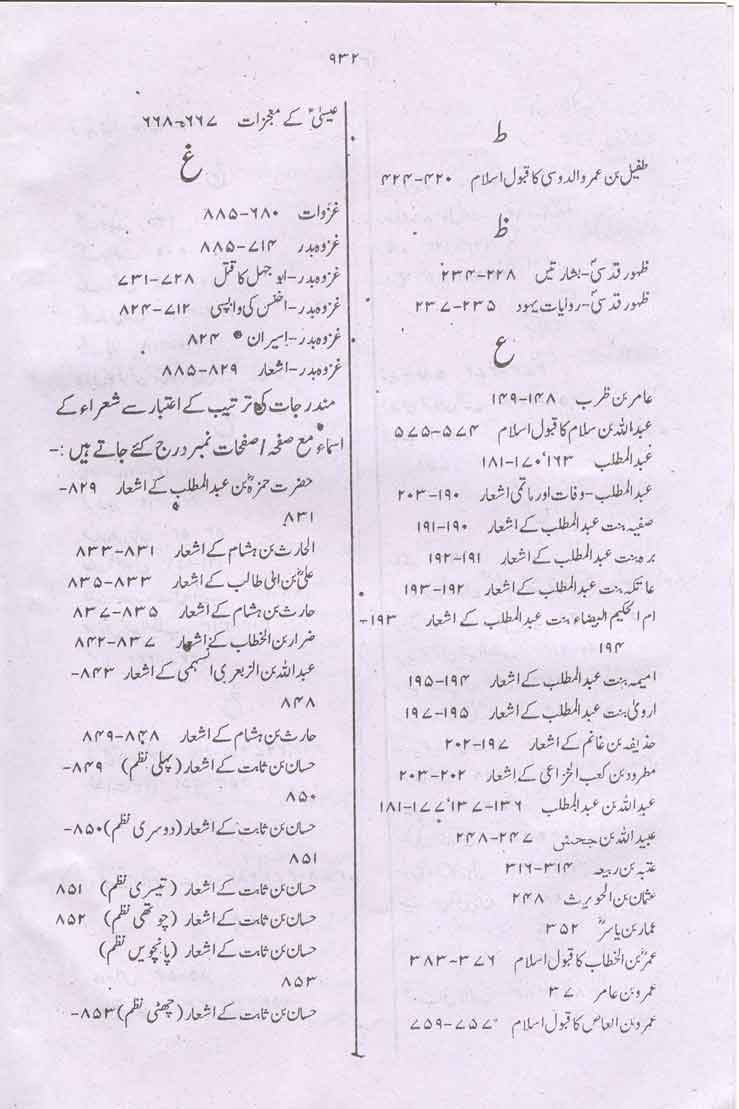 ۹۳۲
ط
طفیل بن عمرو الدوسی کا قبول اسلام ۴۲۰-۴۲۴
ظ
ظہور قدسیؐ-بشارتیں ۲۲۸-۲۳۴
ظہور قدسیؐ-روایات یہود ۲۳۵-۲۳۷
ع
عامر بن ظرب ۱۴۸-۱۴۹
عبداللہ بن سلام کا قبول اسلام ۵۷۴-۵۷۵
عبدالمطلب ۱۶۳، ۱۷۰-۱۸۱
عبدالمطلب-وفات اور ماتمی اشعار ۱۹۰-۲۰۳
صفیہ بنت عبدالمطلب کے اشعار ۱۹۰-۱۹۱
برہ بنت عبدالمطلب کے اشعار ۱۹۱-۱۹۲
عاتکہ بنت عبدالمطلب کے اشعار ۱۹۲-۱۹۳
ام الحکیم البیضاء بنت عبدالمطلب کے اشعار ۱۹۳-
۱۹۴
امیمہ بنت عبدالمطلب کے اشعار ۱۹۴-۱۹۵
ارویٰ بنت عبدالمطلب کے اشعار ۱۹۵-۱۹۷
حذیفہ بن غانم کے اشعار ۱۹۷-۲۰۲
مطرود بن کعب الخزاعی کے اشعار ۲۰۲-۲۰۳
عبداللہ بن عبدالمطلب ۱۳۶-۱۳۷، ۱۷۷-۱۸۱
عبیداللہ بن جحش ۲۴۷-۲۴۸
عتبہ بن ربیعہ ۳۱۴-۳۱۶
عثمان بن الحویرث ۲۴۸
عمار بن یاسرؓ ۳۵۲
عمرؓ بن الخطاب کا قبول اسلام ۳۷۶-۳۸۳
عمرو بن عامر ۳۷
عمرو بن العاص کا قبول اسلام ۷۵۷-۷۵۹
عیسیٰؑ کے معجزات ۶۶۷-۶۶۸
غ
غزوات ۶۸۰-۸۸۵
غزوہ بدر ۷۱۴-۸۸۵
غزوہ بدر-ابوجہل کا قتل ۷۲۸-۷۳۱
غزوہ بدر-اخنس کی واپسی ۷۱۲-۸۲۴
غزوہ بدر-اسیران ۸۲۴
غزوہ بدر-اشعار ۸۲۹-۸۸۵
مندرجات کی ترتیب کے اعتبار سے شعراء کے
اسماء مع صفحہ/صفحات نمبر درج کئے جاتے ہیں:-
حضرت حمزہؓ بن عبدالمطلب کے اشعار ۸۲۹-
۸۳۱
الحارث بن ہشام کے اشعار ۸۳۱-۸۳۳
علیؓ بن ابی طالب کے اشعار ۸۳۳-۸۳۵
حارث بن ہشام کے اشعار ۸۳۵-۸۳۷
ضرار بن الخطاب کے اشعار ۸۳۷-۸۴۲
عبداللہ بن الزبعری السہمی کے اشعار ۸۴۳-
۸۴۸
حارث بن ہشام کے اشعار ۸۴۸-۸۴۹
حسان بن ثابت کے اشعار (پہلی نظم) ۸۴۹-
۸۵۰
حسان بن ثابت کے اشعار (دوسری نظم) ۸۵۰-
۸۵۱
حسان بن ثابت کے اشعار (تیسری نظم) ۸۵۱
حسان بن ثابت کے اشعار (چوتھی نظم) ۸۵۲
حسان بن ثابت کے اشعار (پانچویں نظم)
۸۵۳
حسان بن ثابت کے اشعار (چھٹی نظم) ۸۵۳-